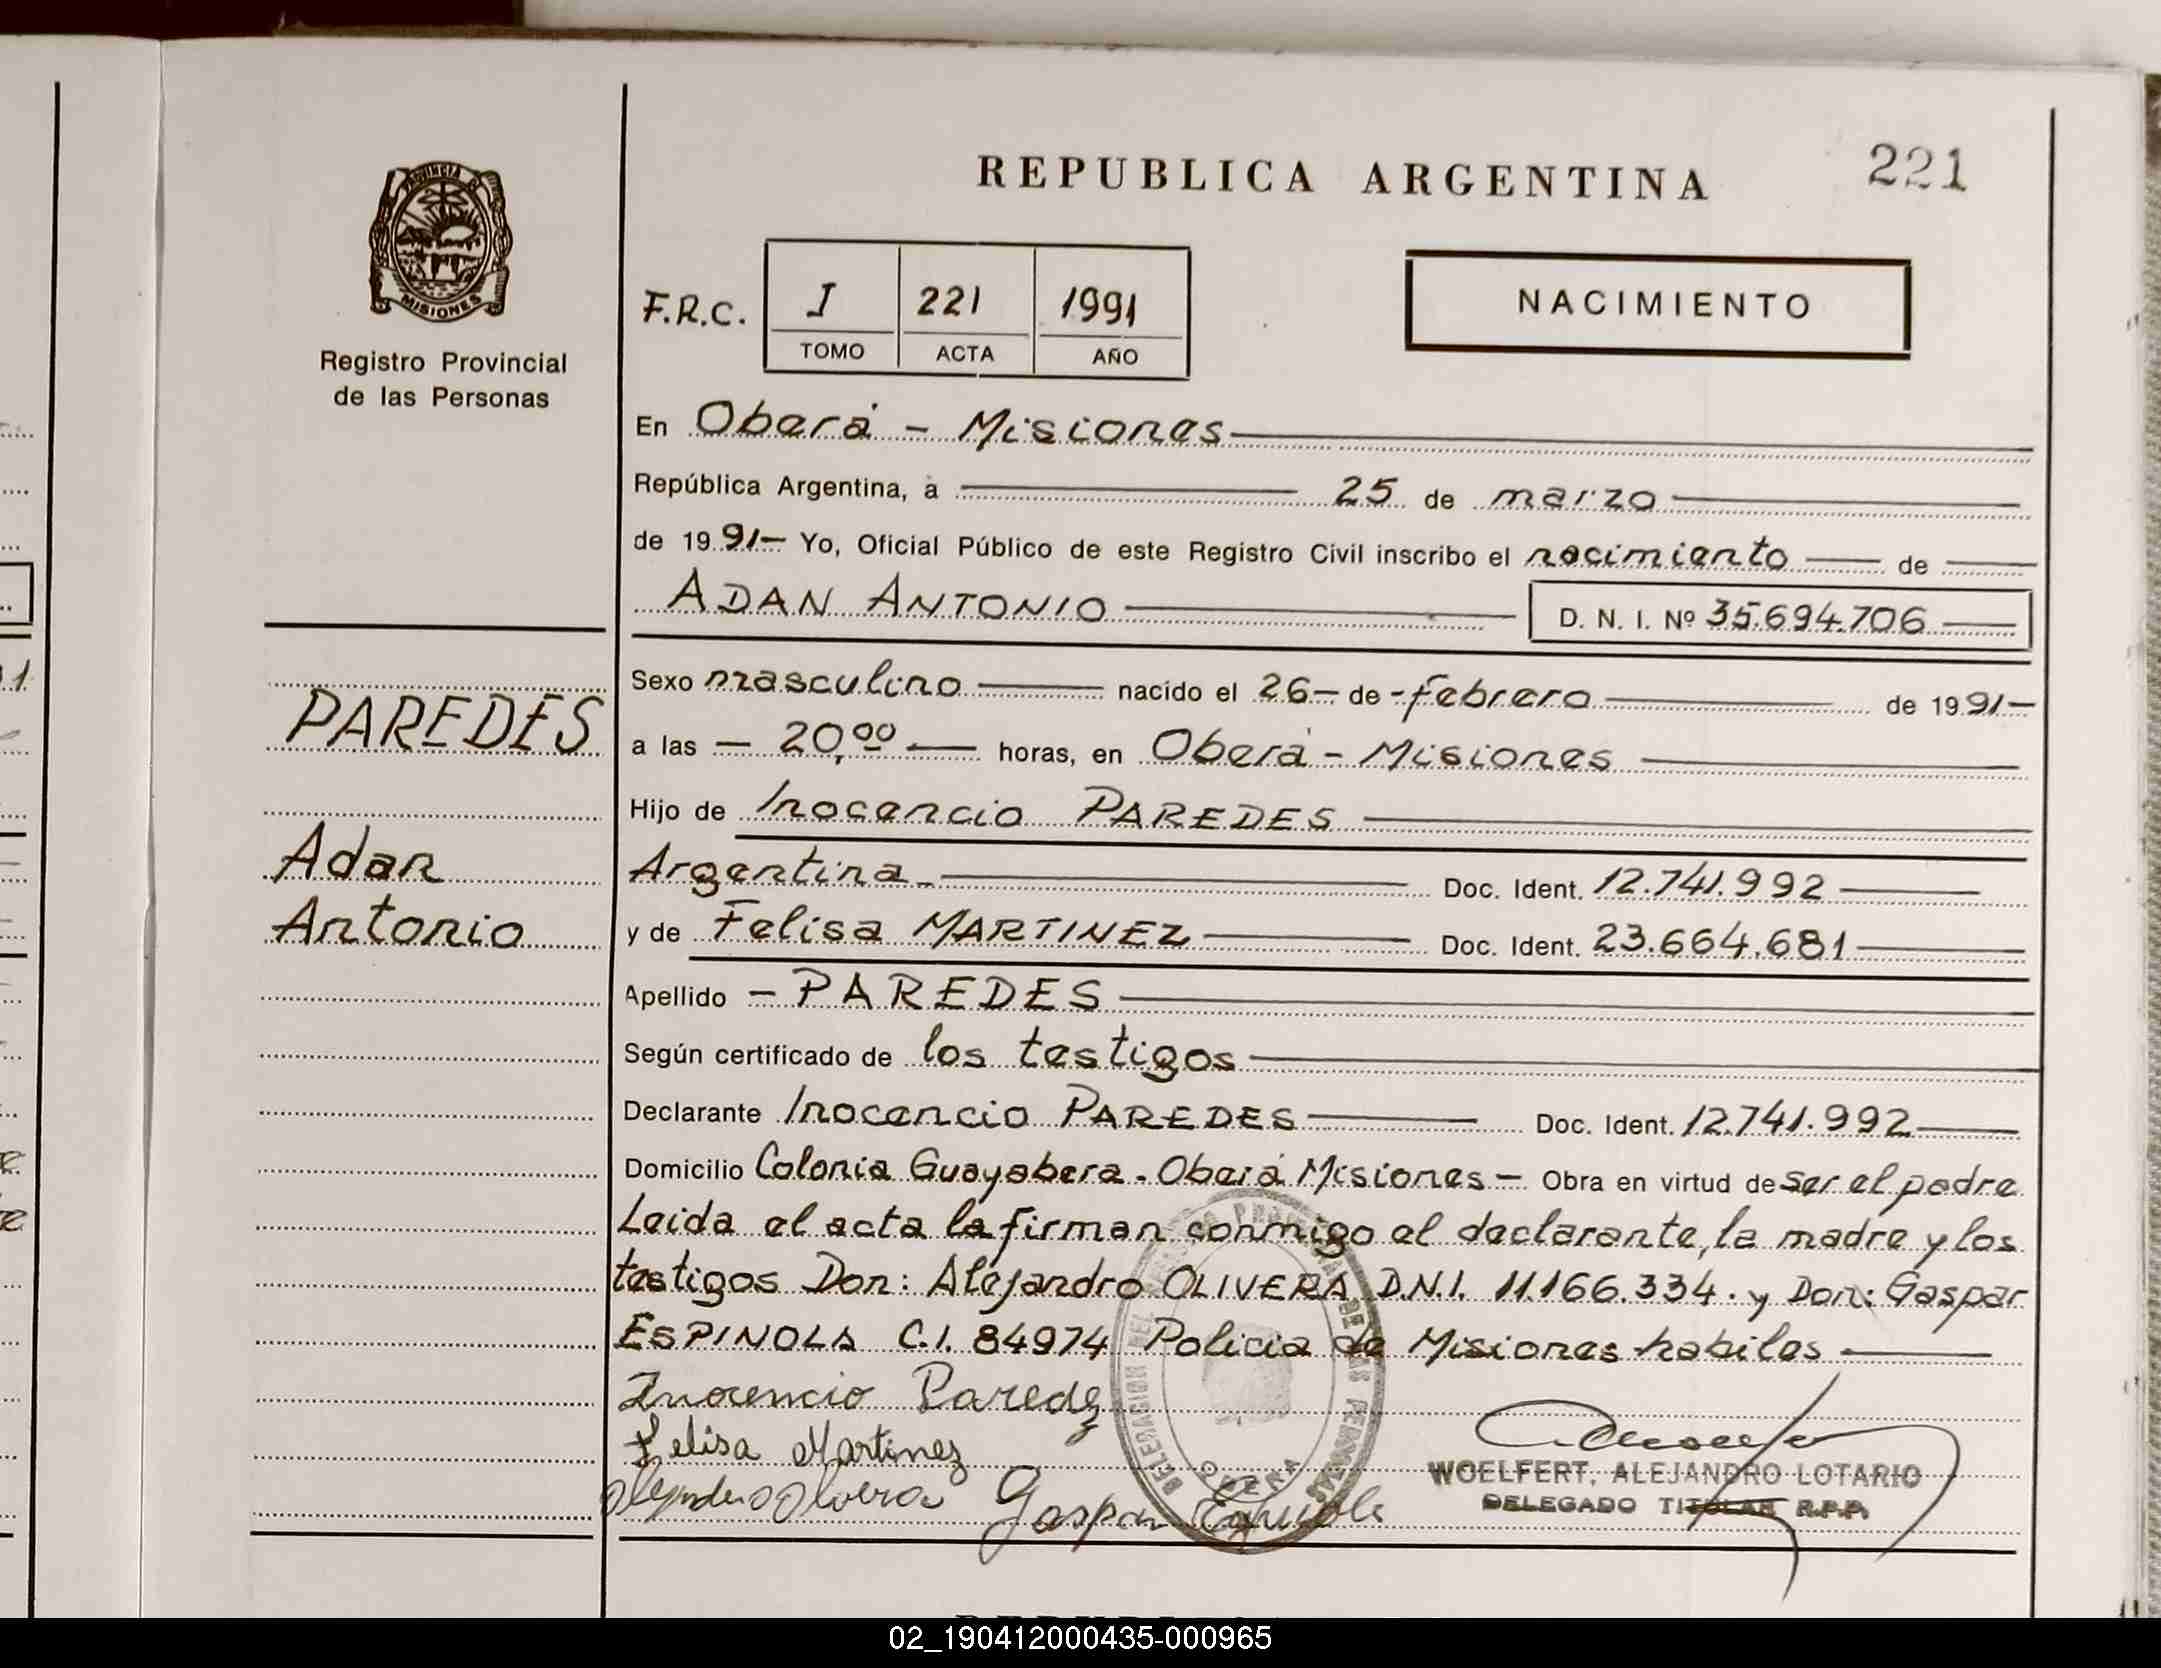 REPUBLICA ARGENTINA
221
PROVINCIA DE
MISIONES
Registro Provincial
de las Personas
F.R.C.
I 221 1991
TOMO ACTA AÑO
NACIMIENTO
En Oberá - Misiones
República Argentina, a 25 de marzo
de 1991- Yo, Oficial Público de este Registro Civil inscribo el nacimiento de
ADAN ANTONIO D. N. I. Nº 35.694.706
PAREDES
Adan
Antonio
Sexo masculino nacido el 26- de - febrero de 1991-
a las - 20,00 horas, en Oberá - Misiones
Hijo de Inocencio PAREDES
Argentina Doc. Ident. 12.741.992
y de Felisa MARTINEZ Doc. Ident. 23.664.681
Apellido - PAREDES
Según certificado de los testigos
Declarante Inocencio PAREDES Doc. Ident. 12.741.992
Domicilio Colonia Guayabera. Oberá Misiones - Obra en virtud de ser el padre
Leida el acta la firman conmigo el declarante, la madre y los
testigos Don: Alejandro OLIVERA D.N.I. 11.166.334. y Don: Gaspar
ESPINOLA C.I. 84974 Policia de Misiones habiles
Inocencio Paredez
Felisa Martinez
Gaspar
DELEGACION DEL REGISTRO PROVINCIAL DE LAS PERSONAS
OBERA
WOELFERT, ALEJANDRO LOTARIO
DELEGADO TITULAR R.P.P.
02_190412000435-000965